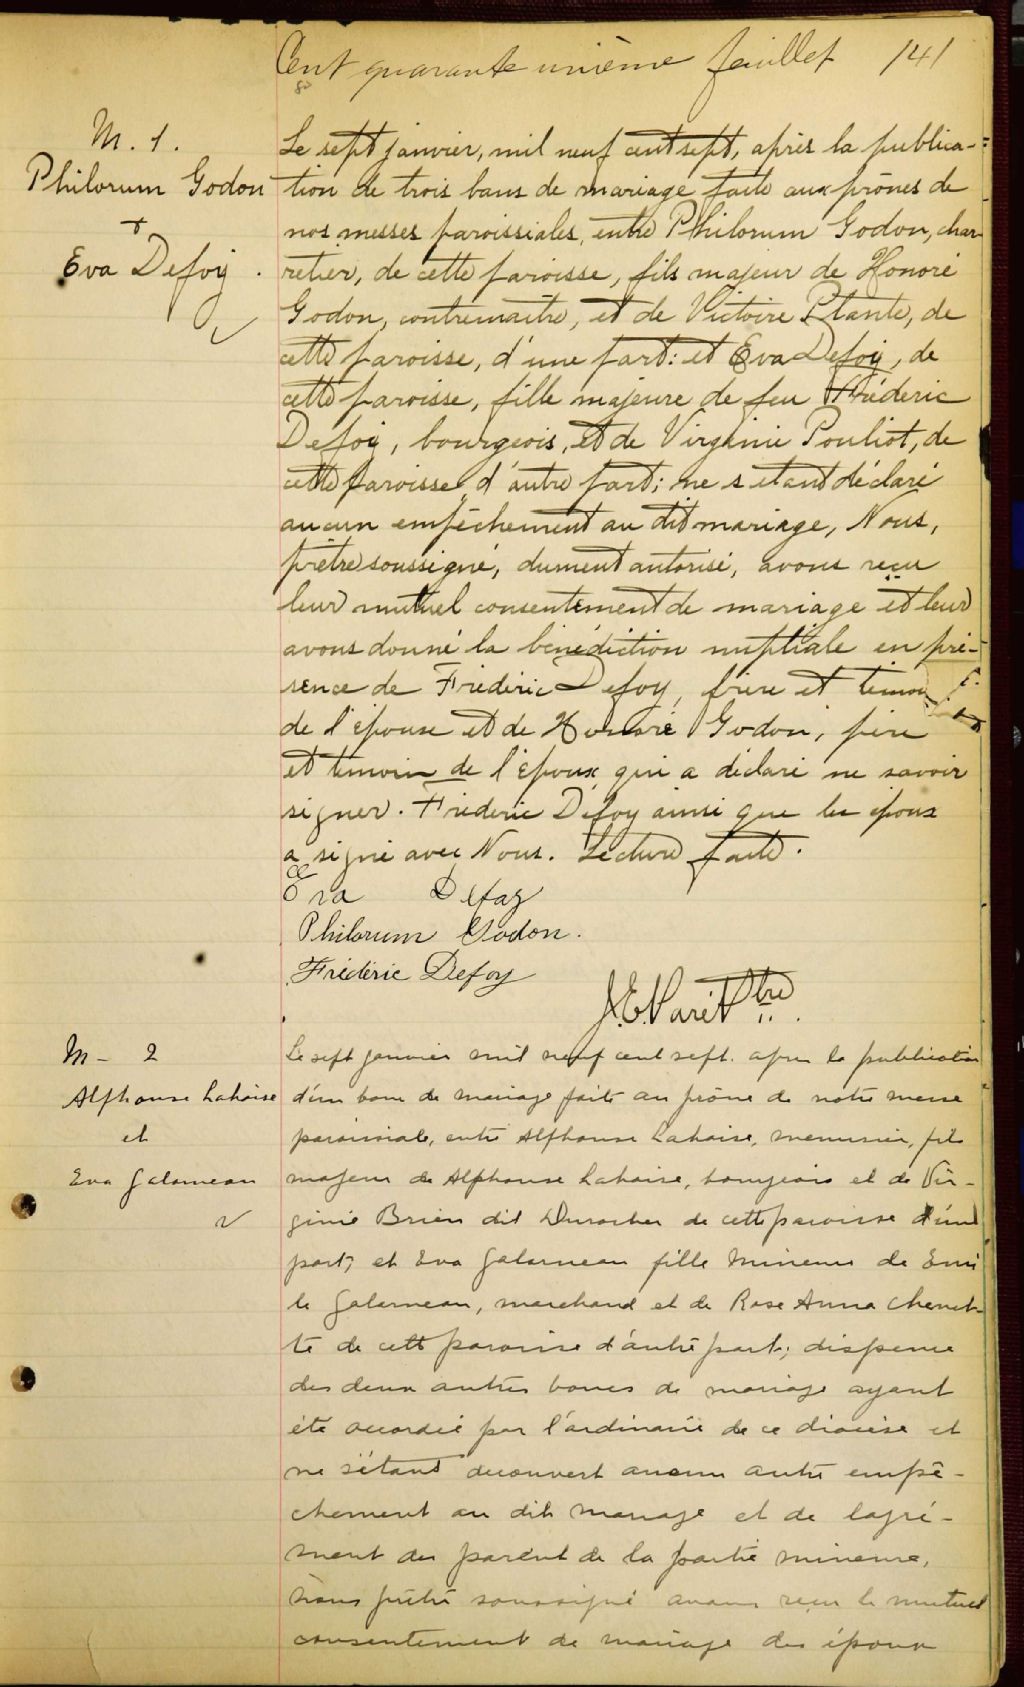 Cent quarante unième feuillet 141
M. 1.
Philorum Godon
+
Eva Defoy.
Le sept janvier, mil neuf cent sept, après la publica-
tion de trois bans de mariage faite aux prônes de
nos messes paroissiales, entre Philorum Godon, char-
retier, de cette paroisse, fils majeur de Honoré
Godon, contremaitre, et de Victoire Plante, de
cette paroisse, d'une part: et Eva Defoy, de
cette paroisse, fille majeure de feu Fréderic
Defoy, bourgeois, et de Virginie Pouliot, de
cette paroisse, d'autre part; ne s'étant déclaré
aucun empêchement au dit mariage, Nous,
prêtre soussigné, dument autorisé, avons reçu
leur mutuel consentement de mariage et leur
avons donné la bénédiction nuptiale en pré-
sence de Fréderic Defoy, frère et temoin
de l'épouse et de Honoré Godon, père
et temoin de l'époux qui a déclaré ne savoir
signer. Fréderic Defoy ainsi que les époux
a signé avec Nous. Lecture faite.
Eva Defoy
Philorum Godon.
Fréderic Defoy
J.E. Paré Ptre
M - 2
Alphonse Lahaise
et
Eva Galarneau
Le sept janvier mil neuf cent sept. après la publication
d'un banc de mariage faite au prône de notre messe
paroissiale, entre Alphonse Lahaise, menuisier, fils
majeur de Alphonse Lahaise, bourgeois et de Vir-
ginie Brien dit Durocher de cette paroisse d'une
part; et Eva Galarneau fille mineure de Emi
le Galarneau, marchand et de Rose Anna Chenet-
te de cette paroisse d'autre part; dispense
des deux autres bancs de mariage ayant
été accordée par l'ordinaire de ce diocèse et
ne s'étant decouvert aucun autre empê-
chement au dit mariage et de l'agré-
ment des parent de la partie mineure,
Nous prêtre soussigné avons reçu le mutuel
consentement de mariage des époux